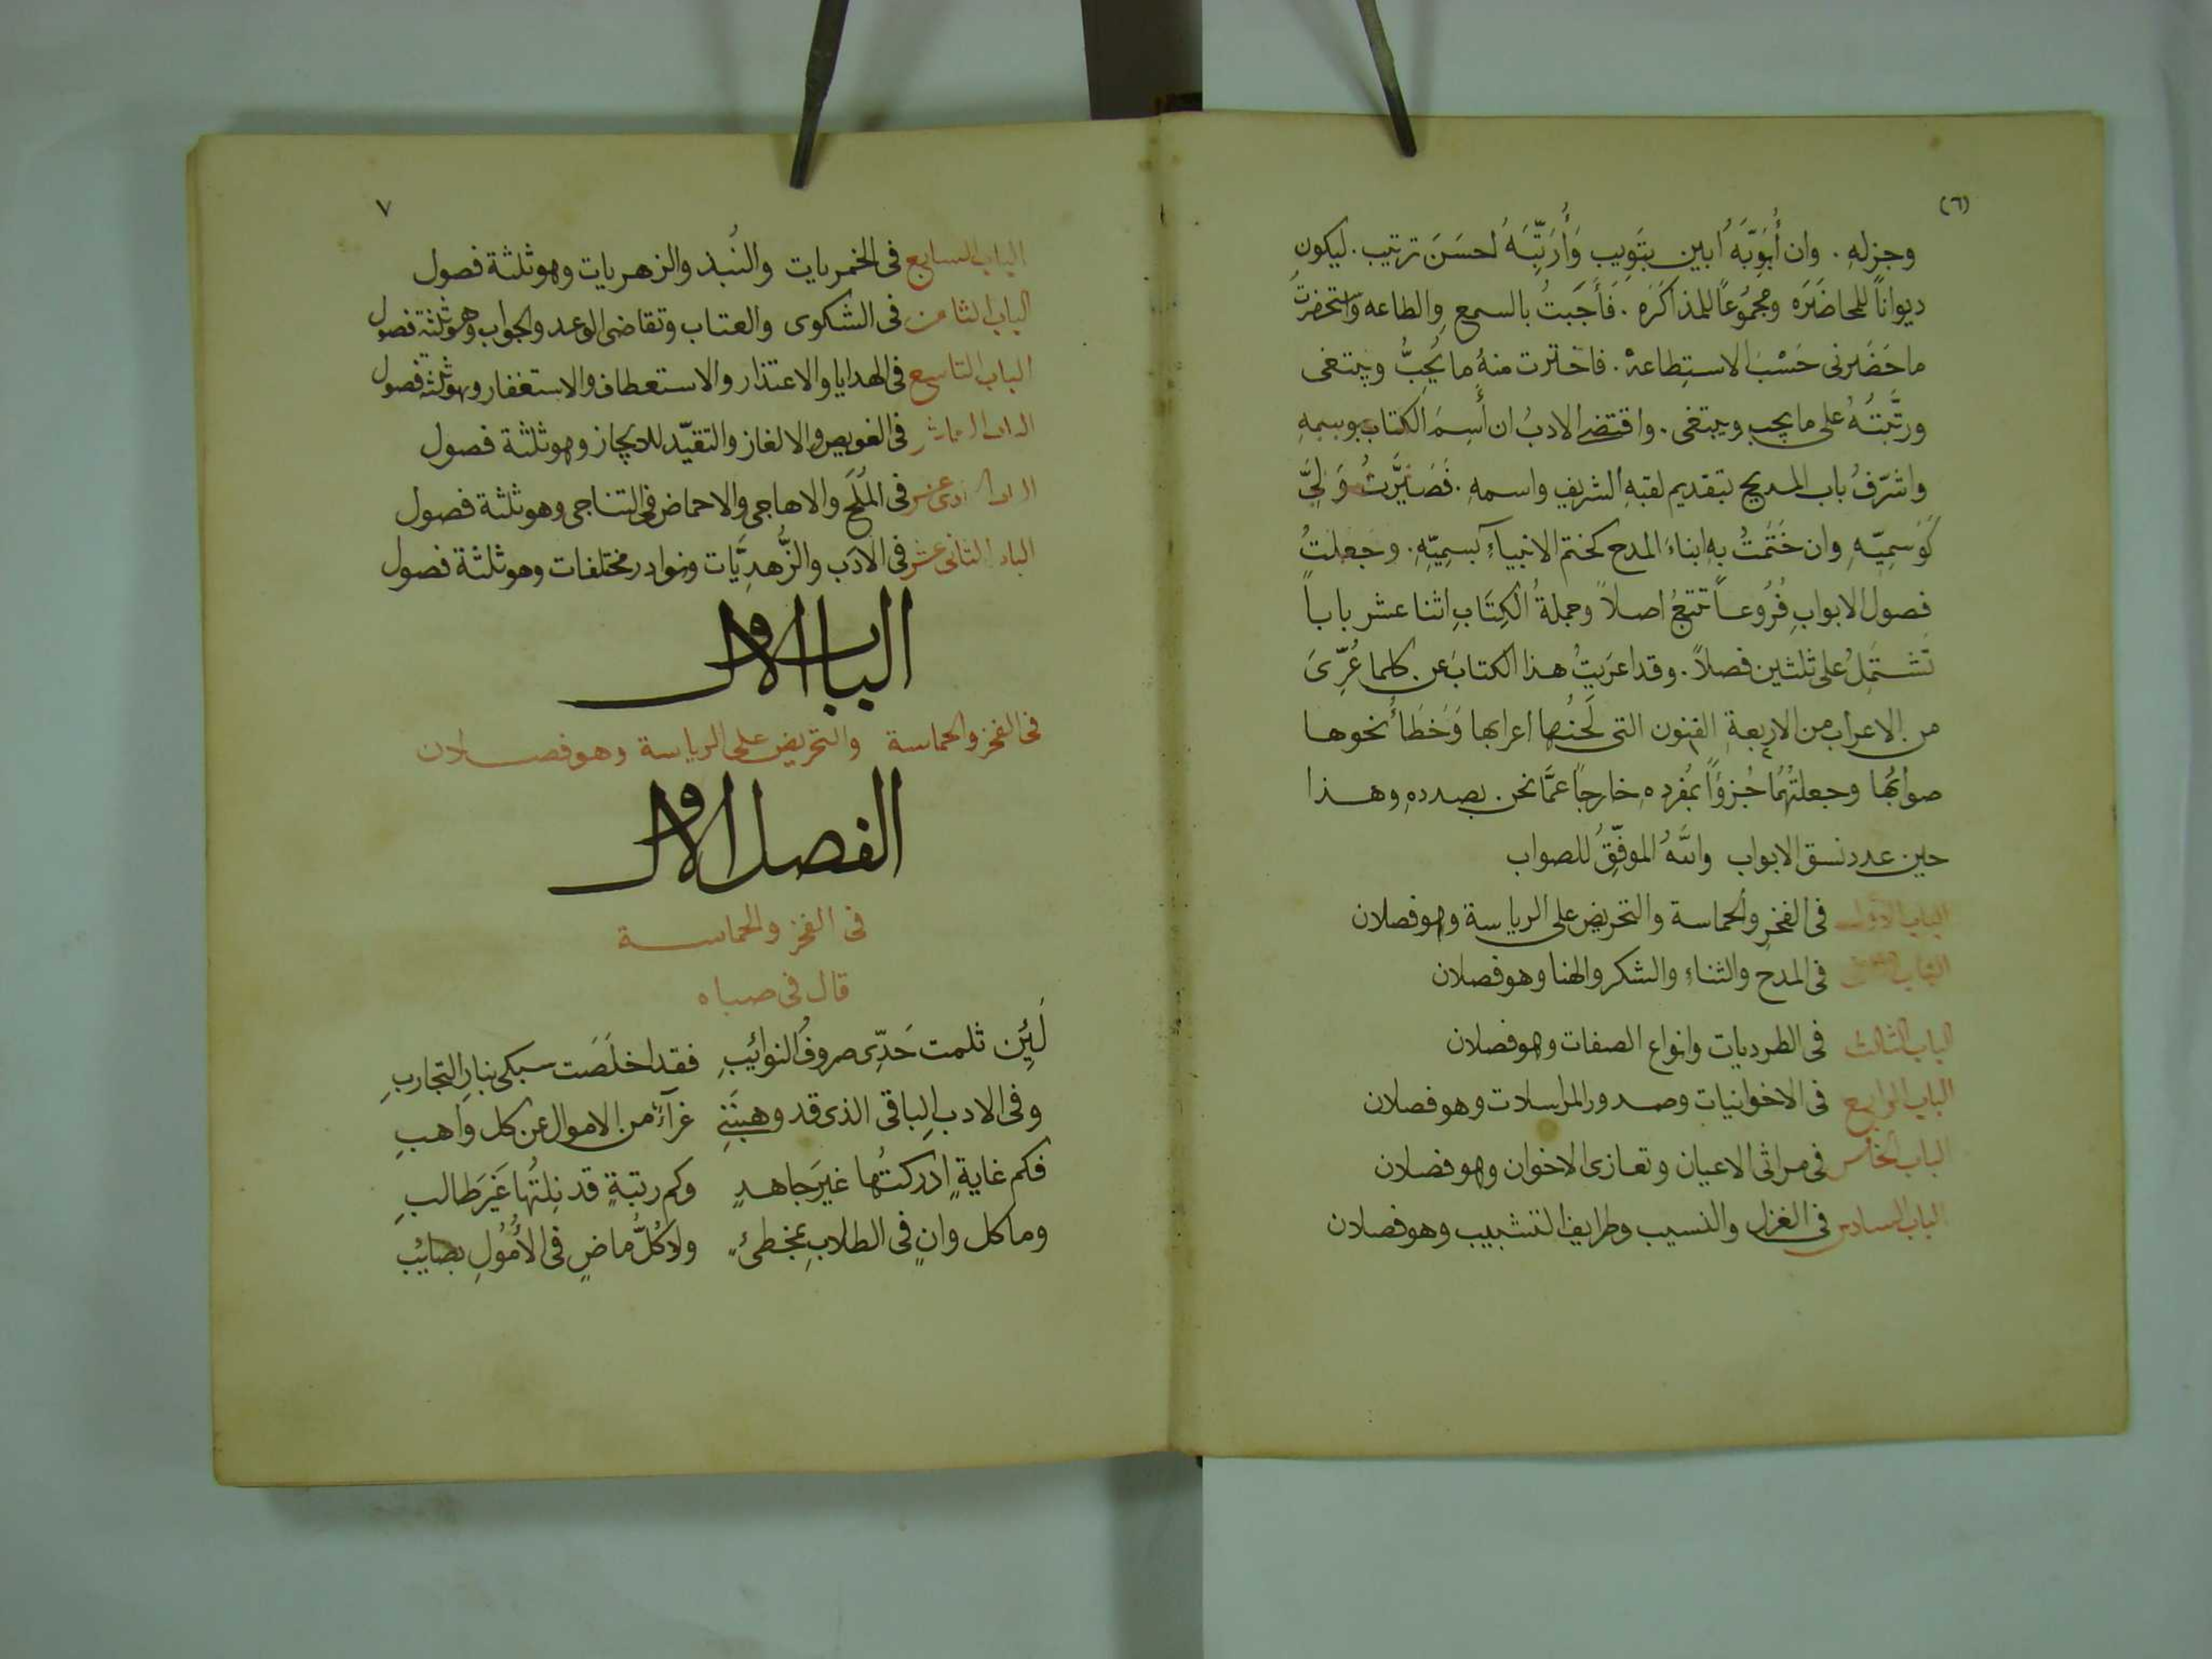 (٦)
وجزله . وان أُبَوِّبَهُ ابين تبويب وَأُرَتِّبَهُ احسَنَ ترتيب . ليكون
ديواناً للمحاضَرَه ومجمُوعاً للمذاكَرَه . فَأَجَبتُ بالسمع والطاعه واستحضرتُ
ما حَضَرنى حَسْبَ الاستِطاعة . فاخترت منهُ ما يُحِبُّ ويبتغى
ورتَّبتُهُ على ما يجب ويبتغى . واقتضى الادبُ ان أَسِمَ الكتاب بوسمِهِ
واشرّفُ باب المديح بتقديم لقبِهِ الشريف واسمهِ . فَصَيَّرتُ وَلِيَّ
كَوَسمِيّهِ وان خَتَمتُ بِهِ ابناءَ المدح كختم الانبياءِ بسمِيّهِ . وجَعلتُ
فصول الابوابِ فُرُوعاً تتبعُ اصلاً وجملةُ الكِتَابِ اثنا عشر باباً
تَشتَمِلُ على ثلثين فصلاً . وقد اعرَيتُ هذا الكتابَ عن كلما عُرِّىَ
من الاعراب من الاربعةِ الفنون التى لَحنُها اعرابها وَخَطَأُ نحوها
صوابُها وجعلتُهُما جُزوًاً بمُفردِهِ خارجاً عمَّا نحن بصددهِ وهذا
حين عدد نسق الابواب واللهُ الموفّقُ للصواب
الباب الاول فى الفخر والحماسة والتحريض على الرياسة وهو فصلان
الباب الثانى فى المدح والثناء والشكر والهنا وهو فصلان
الباب الثالث فى الطرديات وانواع الصفات وهو فصلان
الباب الرابع فى الاخوانيات وصدور المراسلات وهو فصلان
الباب الخامس فى مراثى الاعيان وتعازى الاخوان وهو فصلان
الباب السادس فى الغزل والنسيب وطرايف التشبيب وهو فصلان
٧
الباب السابع فى الخمريات والنُبذ والزهريات وهو ثلثة فصول
الباب الثامن فى الشكوى والعتاب وتقاضى الوعد والجواب وهو ثلثة فصول
الباب التاسع فى الهدايا والاعتذار والاستعطاف والاستغفار وهو ثلثة فصول
الباب العاشر فى العويص والالغاز والتقيّد للايجاز وهو ثلثة فصول
الباب الحادى عشر فى المُلَح والاهاجى والاحماض فى التناجى وهو ثلثة فصول
الباب الثانى عشر فى الادَب والزُّهدِيَّات ونوادر مختلفات وهو ثلثة فصول
الباب الاول
فى الفخر والحماسة والتحريض على الرياسة وهو فصلان
الفصل الاول
فى الفخر والحماسة
قال فى صباه
لَئِن ثلمت حَدِّى صروفُ النوائِبِ فقد اخلَصَت سبكى بنارِ التجاربِ
وفى الادب الباقى الذى قد وهبتَنِى عزآءٌ من الاموال عن كل واهبِ
فكم غايةٍ ادركتُها غيرَ جاهدٍ وكم رتبةٍ قد نِلتُها غَيرَ طالبِ
وما كل وانٍ فى الطلابِ بمخطئٍ ولا كُلُّ ماضٍ فى الأُمُولِ بصائب